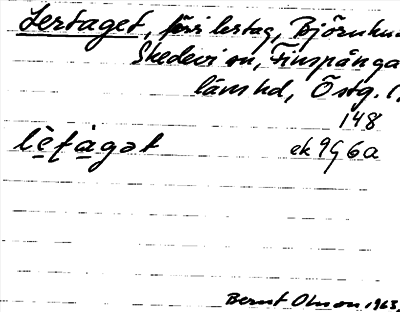 Lertaget, förr lertag, Björnhu
Skedevi sn, Finspånga
länshd, Östg. l.
148
lèt̩àgət ek 9G6a
Bernt Olsson 1963.